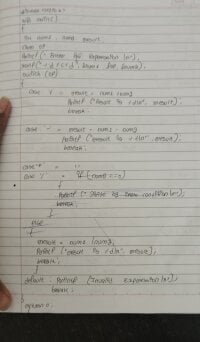 #include <stdio.h>
int main()
{
int num1, num2, result;
char op;
printf(" Enter the expression \n");
scanf("%d %c %d", &num1, &op, &num2);
switch (op)
{
case '+' : result = num1 + num2;
printf("result is %d\n", result);
break;
case '-' : result = num1 - num2;
printf("result is %d\n", result);
break;
case '*' :
case '/' : if (num2==0)
{
printf("
break;
}
else
{
result = num1 / num2;
printf("result is %d\n", result);
break;
}
default : printf("Invalid expression\n");
break;
}
return 0;